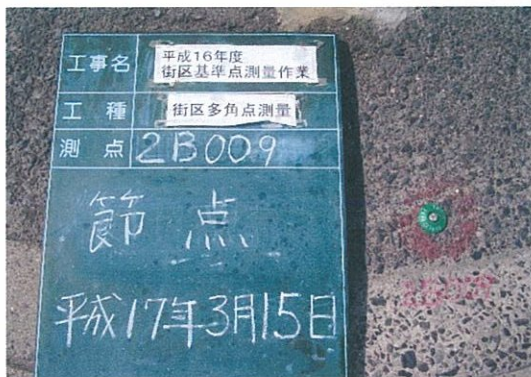 工事名
平成16年度
街区基準点測量作業
工種
街区多角点測量
測点
2B009
節点
平成17年3月15日